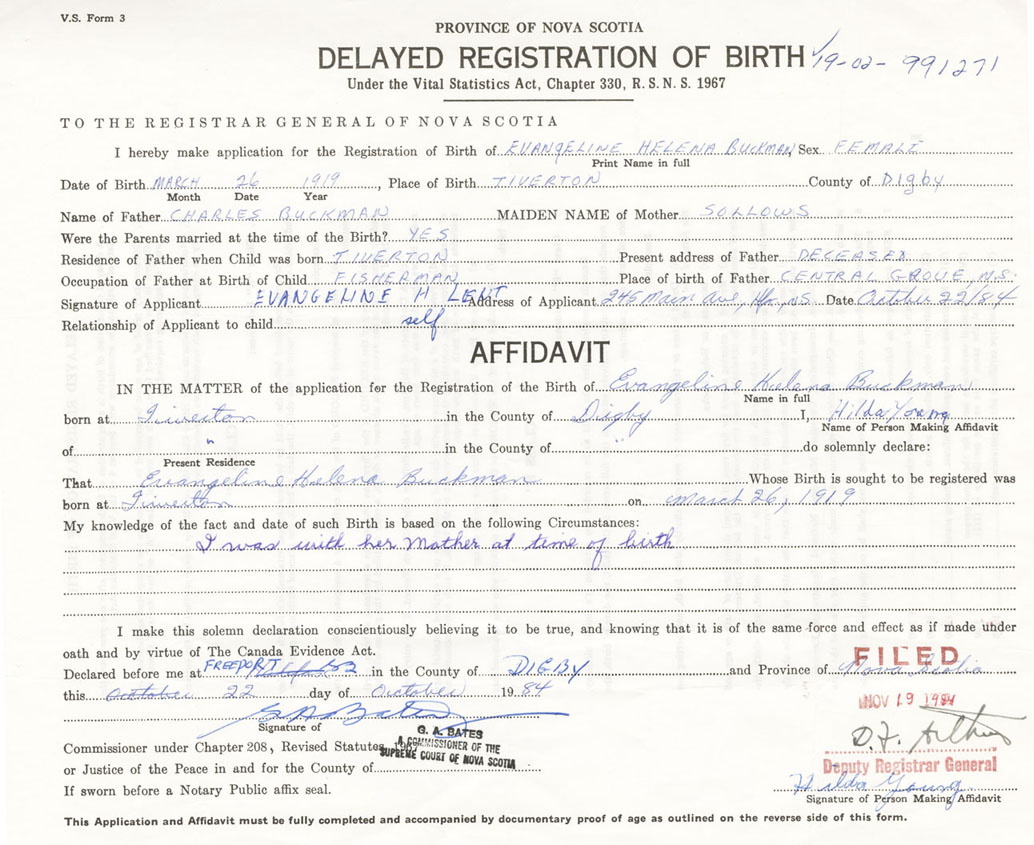 V.S. Form 3
PROVINCE OF NOVA SCOTIA
DELAYED REGISTRATION OF BIRTH 19-02-991271
Under the Vital Statistics Act, Chapter 330, R.S.N.S. 1967
TO THE REGISTRAR GENERAL OF NOVA SCOTIA
I hereby make application for the Registration of Birth of EVANGELINE HELENA BUCKMAN, Sex FEMALE
Print Name in full
Date of Birth MARCH 26 1919, Place of Birth TIVERTON County of Digby
Month Date Year
Name of Father CHARLES BUCKMAN MAIDEN NAME of Mother SOLLOWS
Were the Parents married at the time of the Birth? YES
Residence of Father when Child was born TIVERTON Present address of Father DECEASED
Occupation of Father at Birth of Child FISHERMAN Place of birth of Father CENTRAL GROVE, N.S.
Signature of Applicant EVANGELINE H LENT Address of Applicant 245 Main Ave, Hfx, NS. Date October 22/84
Relationship of Applicant to child self
AFFIDAVIT
IN THE MATTER of the application for the Registration of the Birth of Evangeline Helena Buckman
Name in full
born at Tiverton in the County of Digby I, Hilda Young
Name of Person Making Affidavit
of " in the County of " do solemnly declare:
Present Residence
That Evangeline Helena Buckman Whose Birth is sought to be registered was
born at Tiverton on March 26, 1919
My knowledge of the fact and date of such Birth is based on the following Circumstances:
I was with her Mother at time of birth
I make this solemn declaration conscientiously believing it to be true, and knowing that it is of the same force and effect as if made under
oath and by virtue of The Canada Evidence Act.
Declared before me at FREEPORT in the County of DIGBY and Province of Nova Scotia
FILED
this October 22 day of October 1984
NOV 19 1984
G A Bates
Signature of
G. A. BATES
Commissioner under Chapter 208, Revised Statutes
A COMMISSIONER OF THE
SUPREME COURT OF NOVA SCOTIA
or Justice of the Peace in and for the County of
Deputy Registrar General
If sworn before a Notary Public affix seal.
Hilda Young
Signature of Person Making Affidavit
This Application and Affidavit must be fully completed and accompanied by documentary proof of age as outlined on the reverse side of this form.